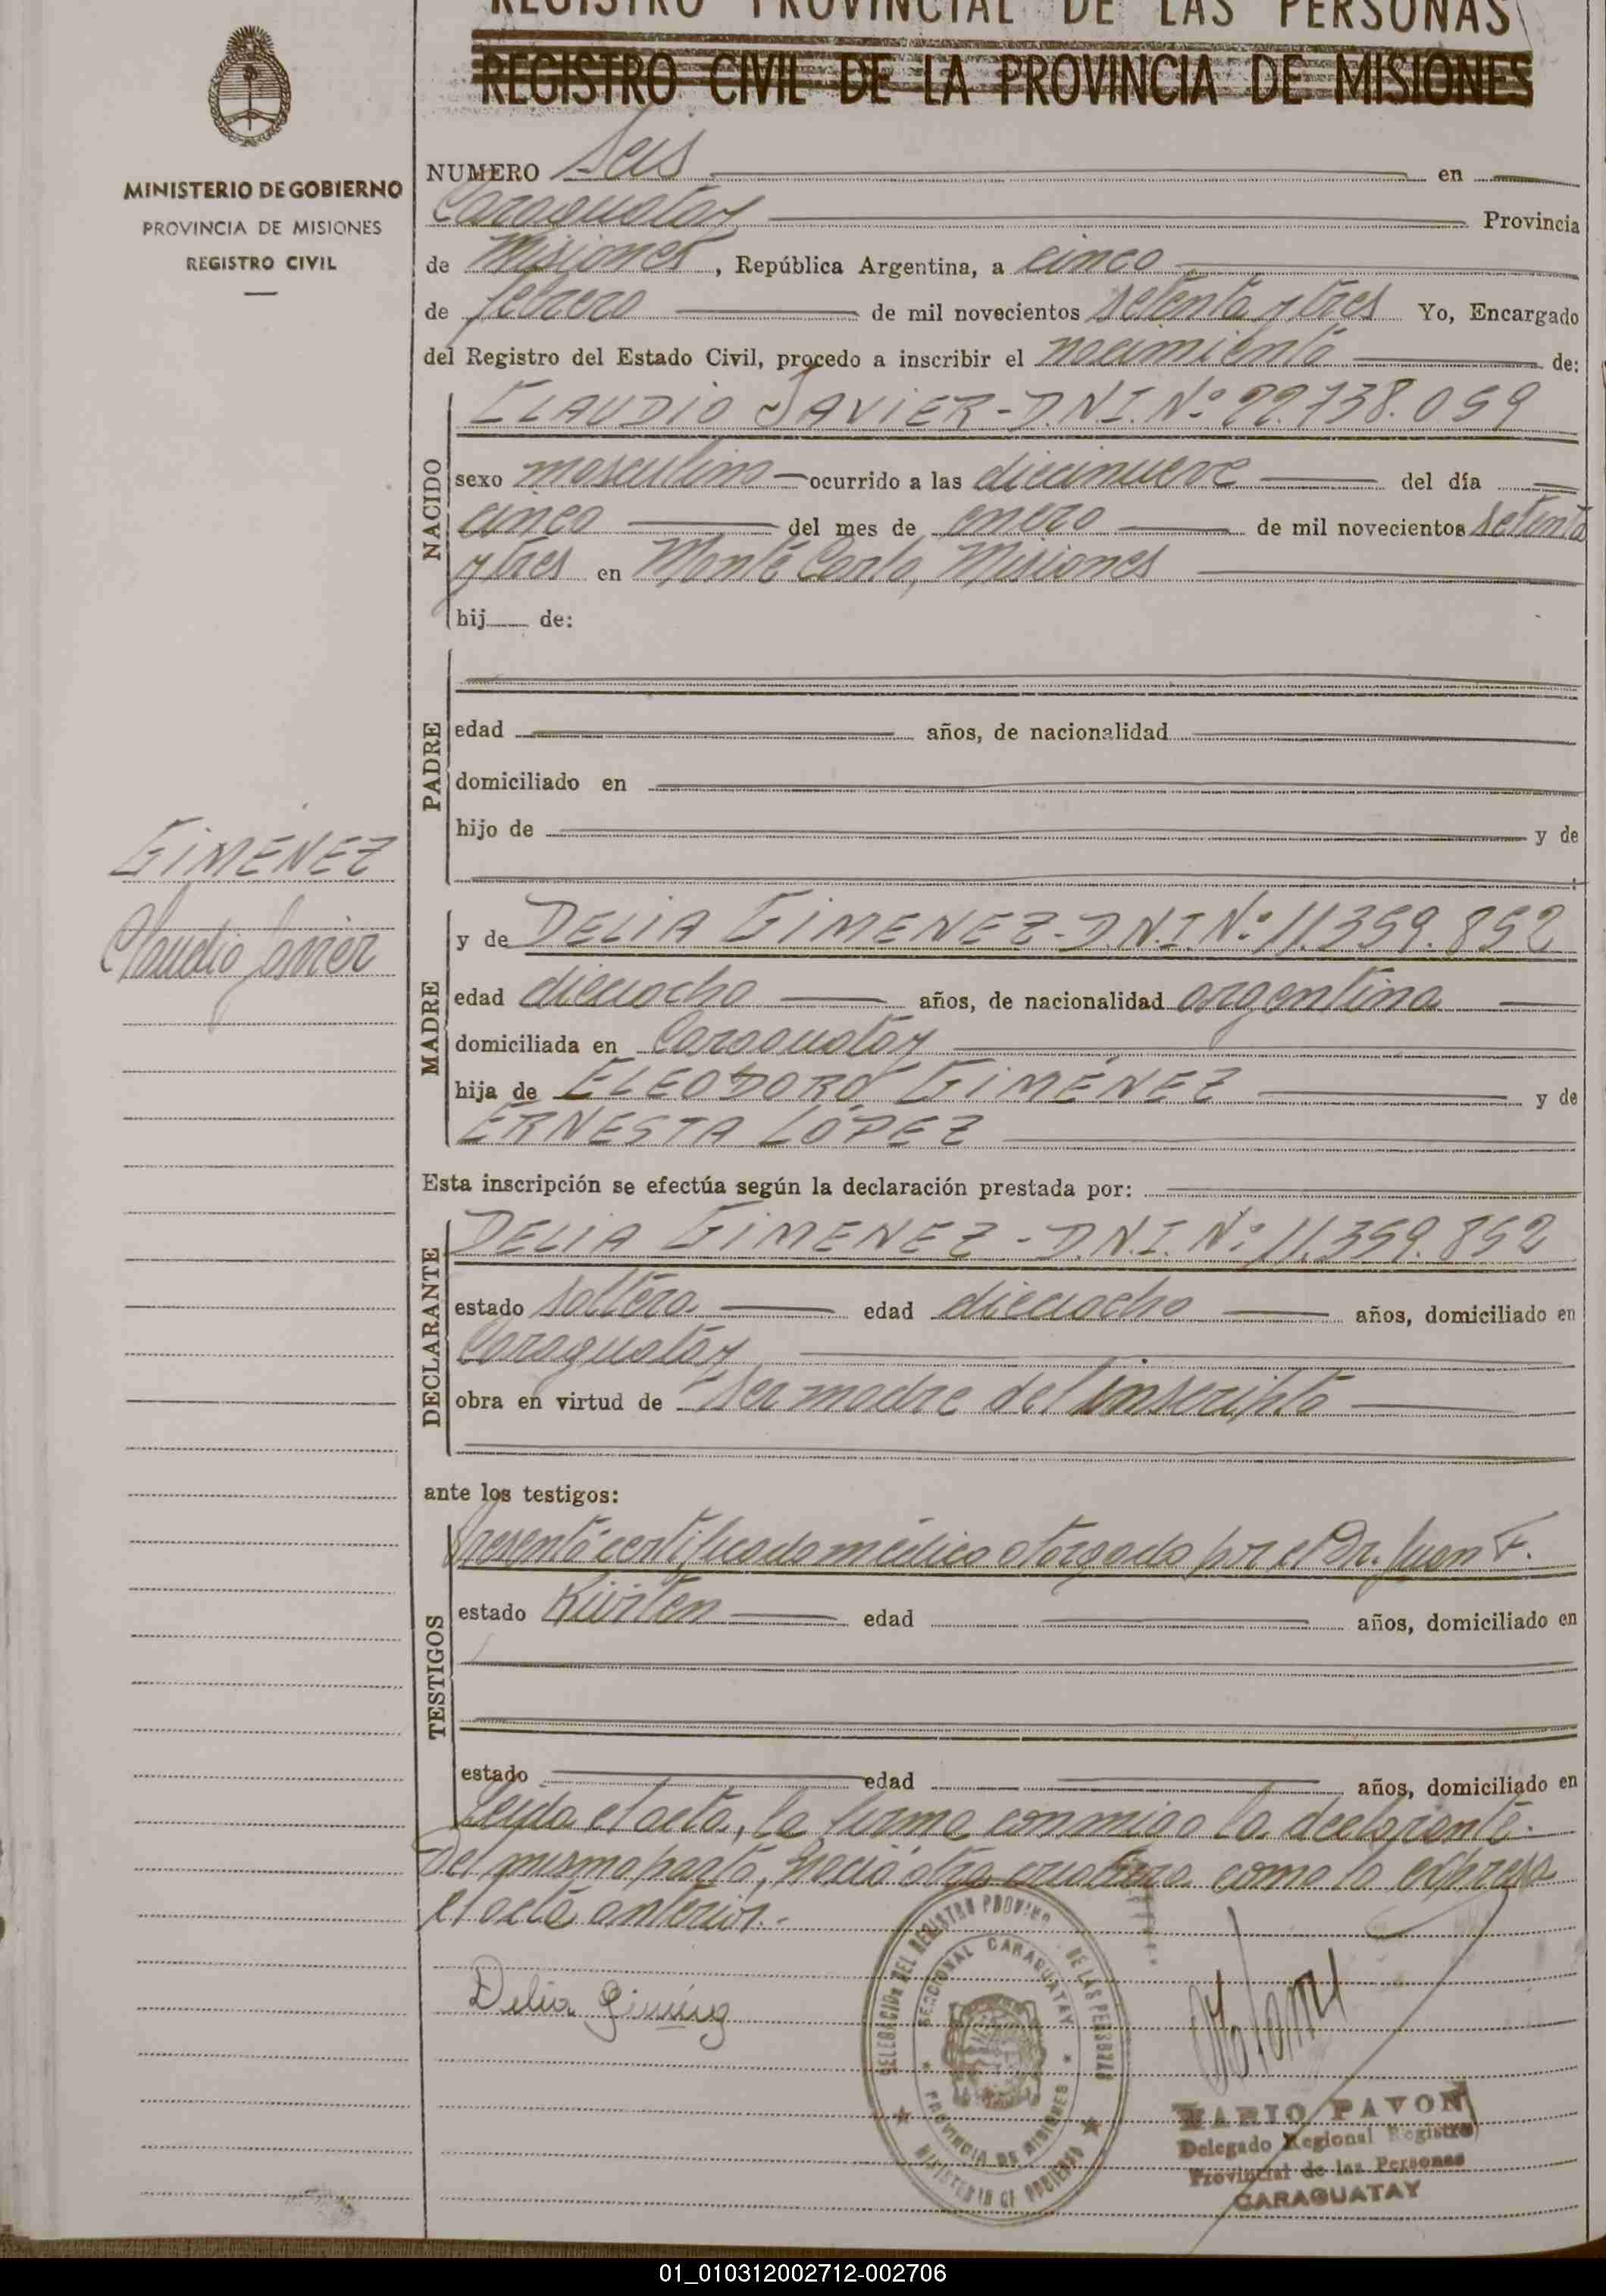 REGISTRO PROVINCIAL DE LAS PERSONAS
REGISTRO CIVIL DE LA PROVINCIA DE MISIONES
MINISTERIO DE GOBIERNO
PROVINCIA DE MISIONES
REGISTRO CIVIL
NUMERO Seis en
Caraguatay Provincia
de Misiones, República Argentina, a cinco
de febrero de mil novecientos setenta y tres Yo, Encargado
del Registro del Estado Civil, procedo a inscribir el nacimiento de:
NACIDO
CLAUDIO JAVIER - D.N.I. Nº 22.738.059
sexo masculino ocurrido a las diecinueve del día
cinco del mes de enero de mil novecientos setenta
y tres en Monte Carlo, Misiones
hij de:
PADRE
edad años, de nacionalidad
domiciliado en
hijo de y de
GIMÉNEZ
Claudio Javier
MADRE
y de DELIA GIMENEZ - D.N.I. Nº 11.359.852
edad dieciocho años, de nacionalidad argentina
domiciliada en Caraguatay
hija de ELEODORO GIMÉNEZ y de
ERNESTA LÓPEZ
Esta inscripción se efectúa según la declaración prestada por:
DECLARANTE
DELIA GIMENEZ - D.N.I. Nº 11.359.852
estado soltera edad dieciocho años, domiciliado en
Caraguatay
obra en virtud de ser madre del inscripto
ante los testigos:
TESTIGOS
Presentó certificado médico otorgado por el Dr. Juan F.
estado edad años, domiciliado en
estado edad años, domiciliado en
Leída el acta, la firma conmigo la declarante.
Del mismo parto, nació otra criatura como lo expresa
el acta anterior.-
Delia Giménez
DELEGACION DEL REGISTRO PROVINC. DE LAS PERSONAS
SECCIONAL CARAGUATAY
PROVINCIA DE MISIONES
MINISTERIO DE GOBIERNO
MARIO PAVON
Delegado Regional Registro
Provincial de las Personas
CARAGUATAY
01_010312002712-002706